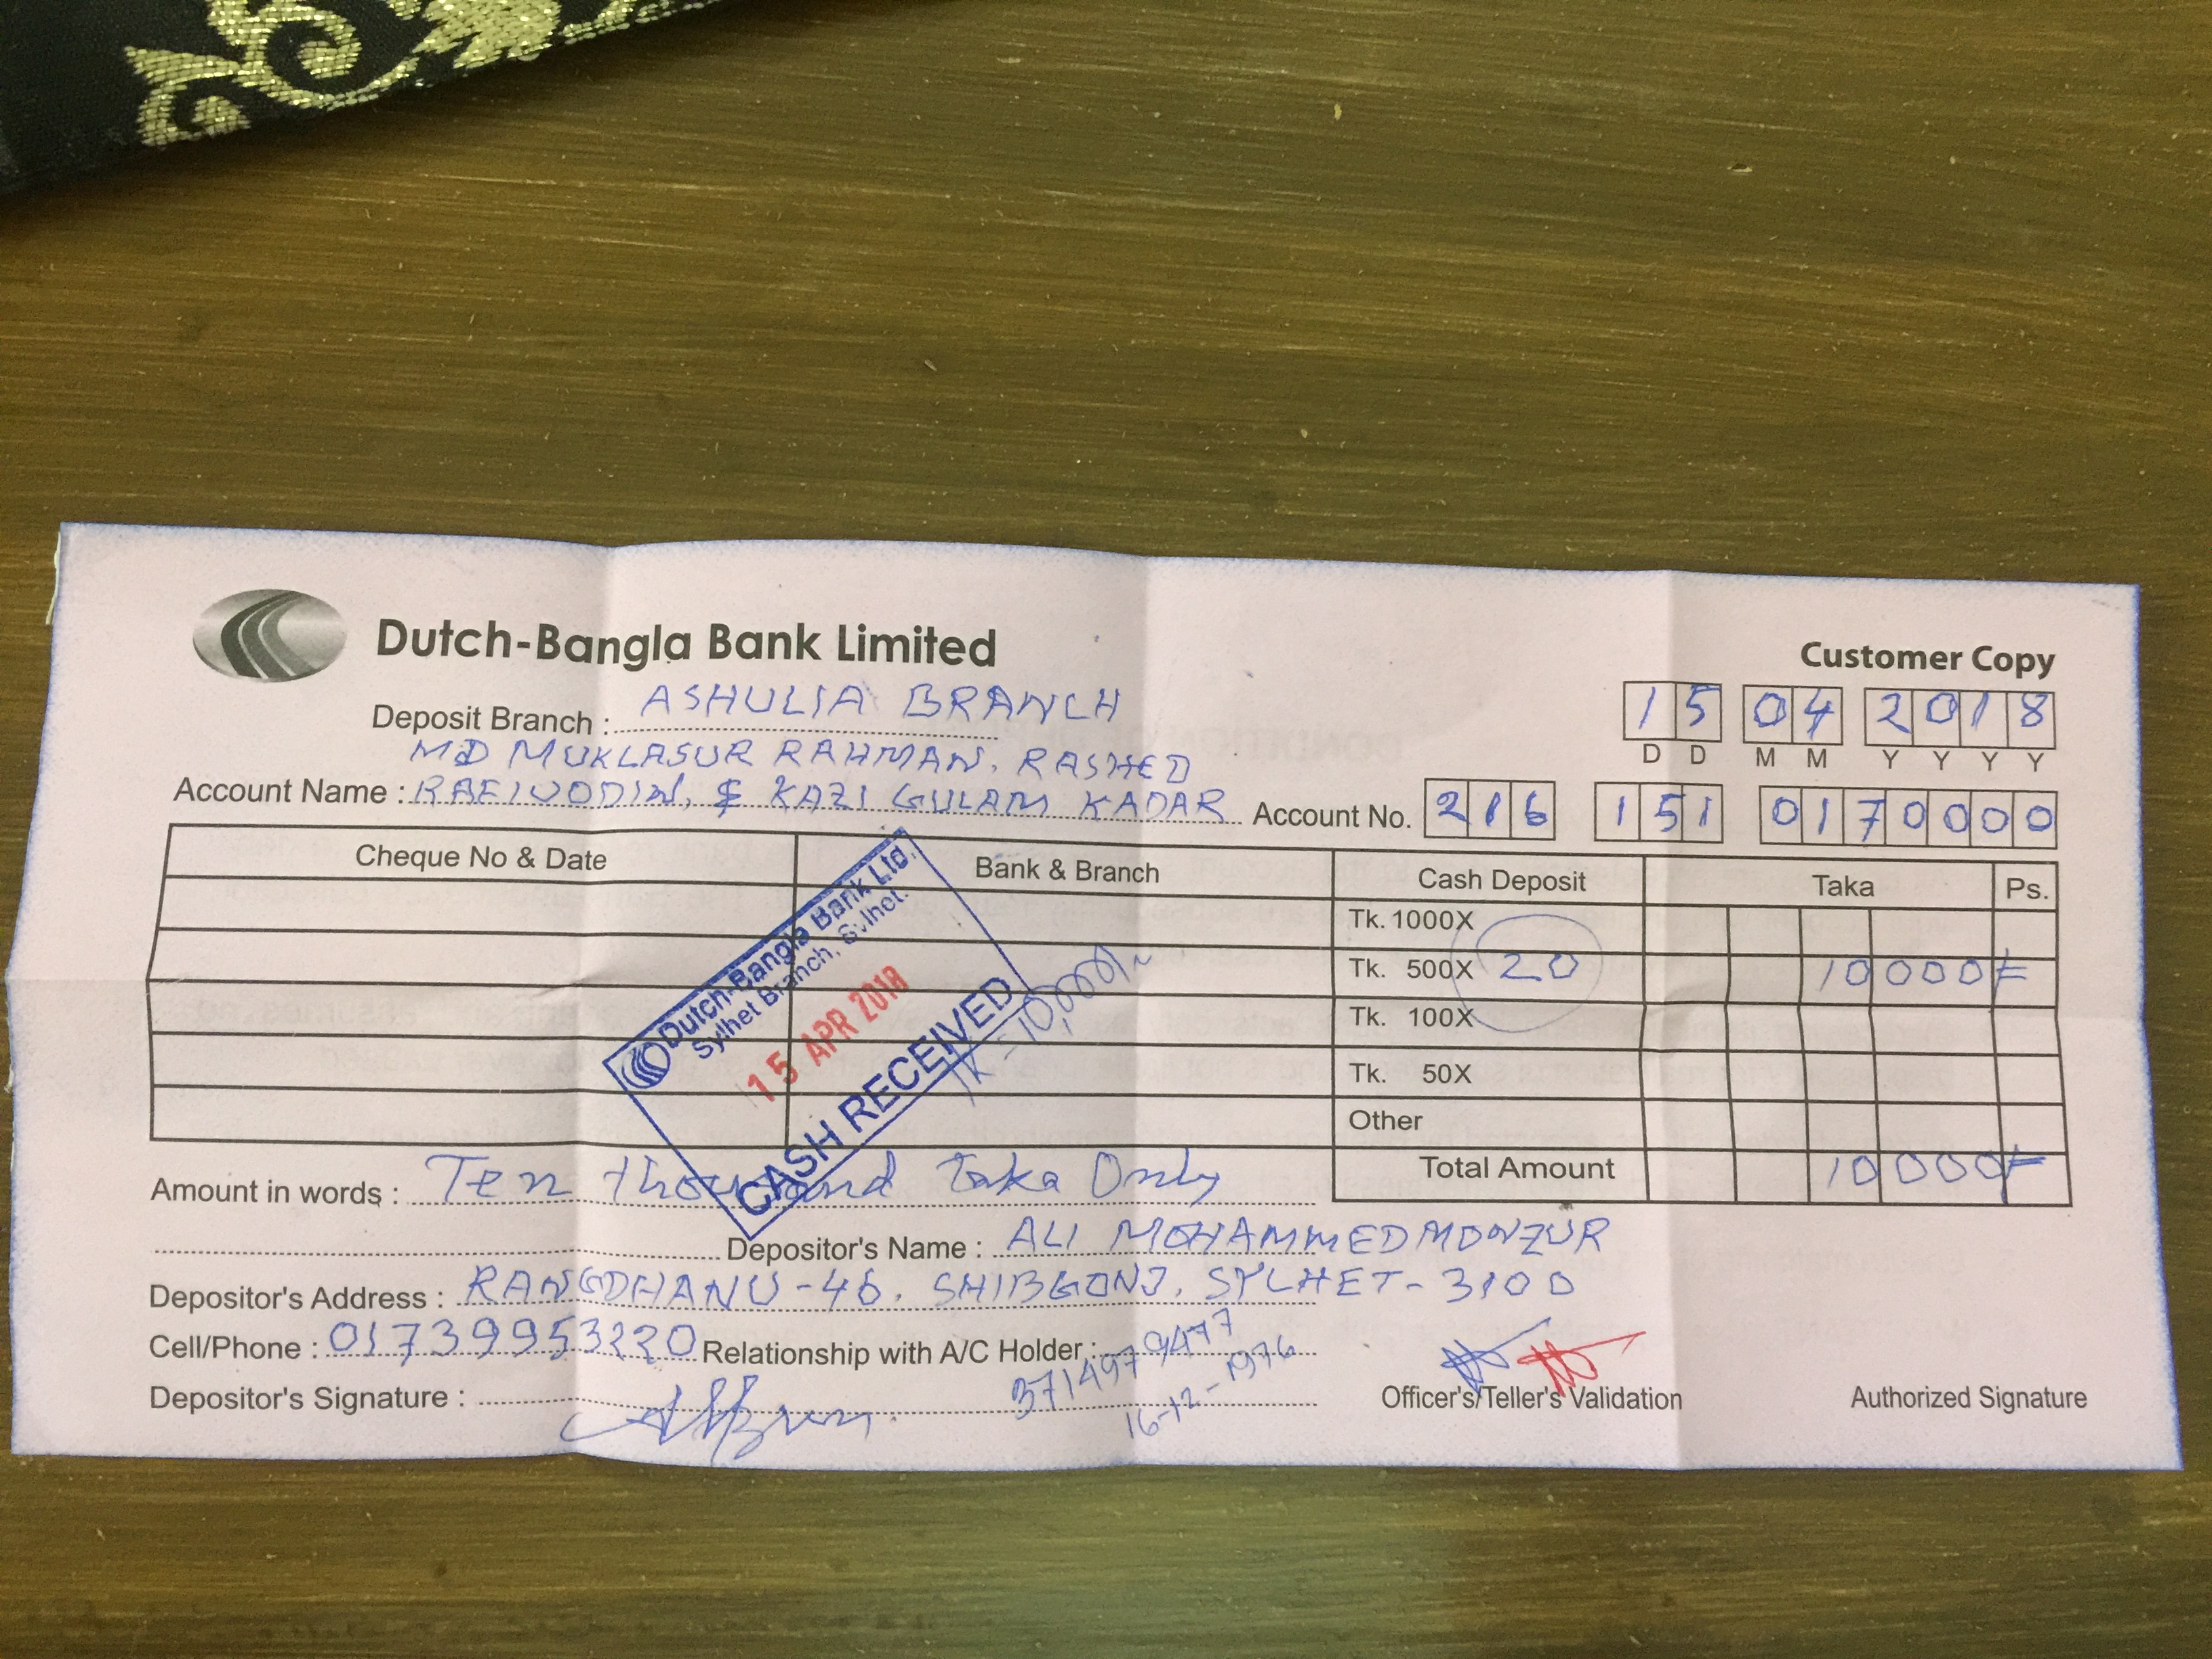 Dutch-Bangla Bank Limited
Customer Copy
Deposit Branch : ASHULIA BRANCH
15 04 2018
D D M M Y Y Y Y
MD MUKLASUR RAHMAN, RASHED
Account Name : RAFIUDDIN, & KAZI GULAM KADAR Account No. 216 151 0170000
Cheque No & Date Bank & Branch Cash Deposit Taka Ps.
Tk. 1000X
Tk. 500X 20 10000/=
Tk. 100X
Tk. 50X
Other
Total Amount 10000/=
Dutch-Bangla Bank Ltd.
Sylhet Branch, Sylhet.
15 APR 2018
CASH RECEIVED
Amount in words : Ten thousand Taka Only
Depositor's Name : ALI MOHAMMED MONZUR
Depositor's Address : RANGDHANU-46, SHIBGONJ, SYLHET-3100
Cell/Phone : 017399953220 Relationship with A/C Holder :
Depositor's Signature :
Officer's/Teller's Validation
Authorized Signature